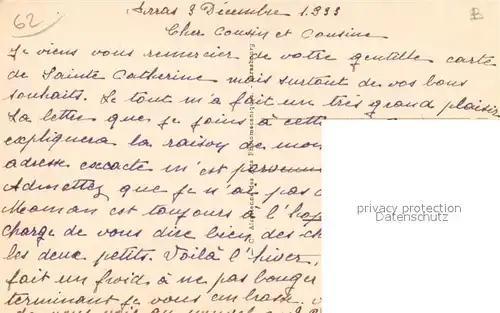 62
Arras 3 Décembre 1933
Cher Cousin et Cousine
Je viens vous remercier de votre gentille carte
de Sainte Catherine mais surtout de vos bons
souhaits. Le tout m'a fait un très grand plaisir
La lettre que je joins à cette
expliquera la raison de mon
adresse exacte m'est
Admettez que je n'ai pas
Maman est toujours à l'
charge de vous dire bien des ch
les deux petits. Voilà l'hiver,
fait un froid à ne pas bouger
terminant je vous embrasse.
privacy protection
Datenschutz